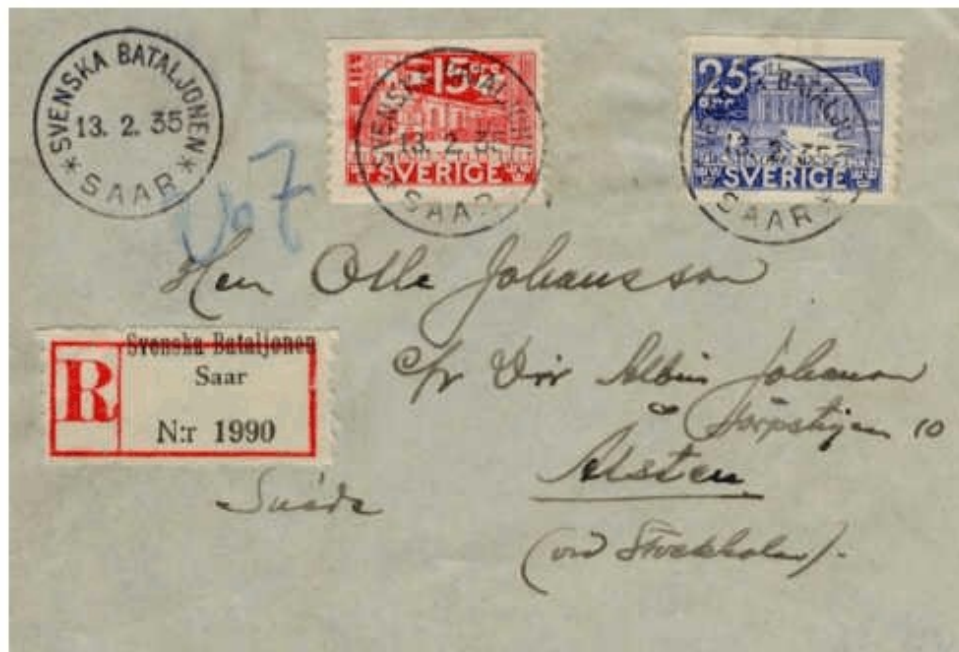 SVENSKA BATALJONEN
13. 2. 35
SAAR
15 öre
SVERIGE
SVENSKA BATALJONEN
13. 2. 35
SAAR
25 öre
SVERIGE
SVENSKA BATALJO
13. 2. 35
SAAR
Herr Olle Johansson
Svenska Bataljonen
Saar
R
N:r 1990
c/o Dir Albin Johansson
10
Ålsten
Suède
(vid Stockholm).